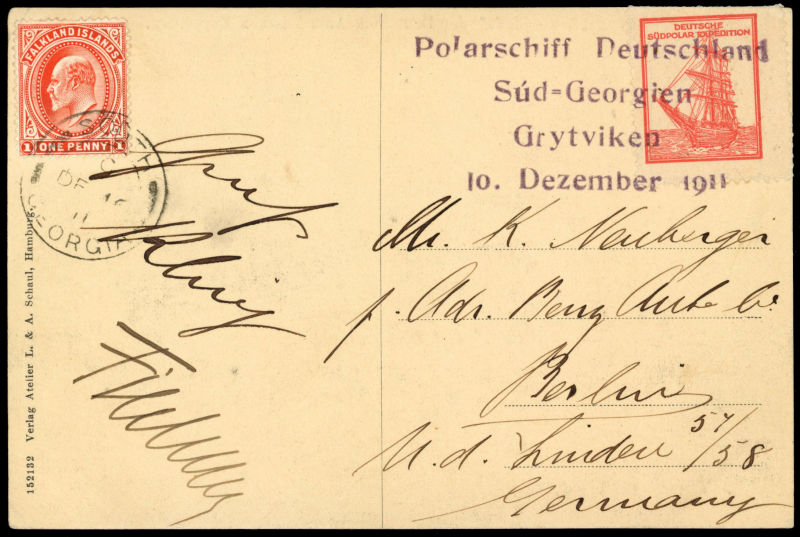 FALKLAND ISLANDS
1 ONE PENNY 1
GEORGIA
Polarschiff Deutschland
Súd=Georgien
Grytviken
10. Dezember 1911
DEUTSCHE
SÜDPOLAR EXPEDITION
Mr. K. Neuberger
p. Adr. Benz Auto
Berlin
U. d. Linden 57/58
Germany
152132 Verlag Atelier L. & A. Schaul, Hamburg.